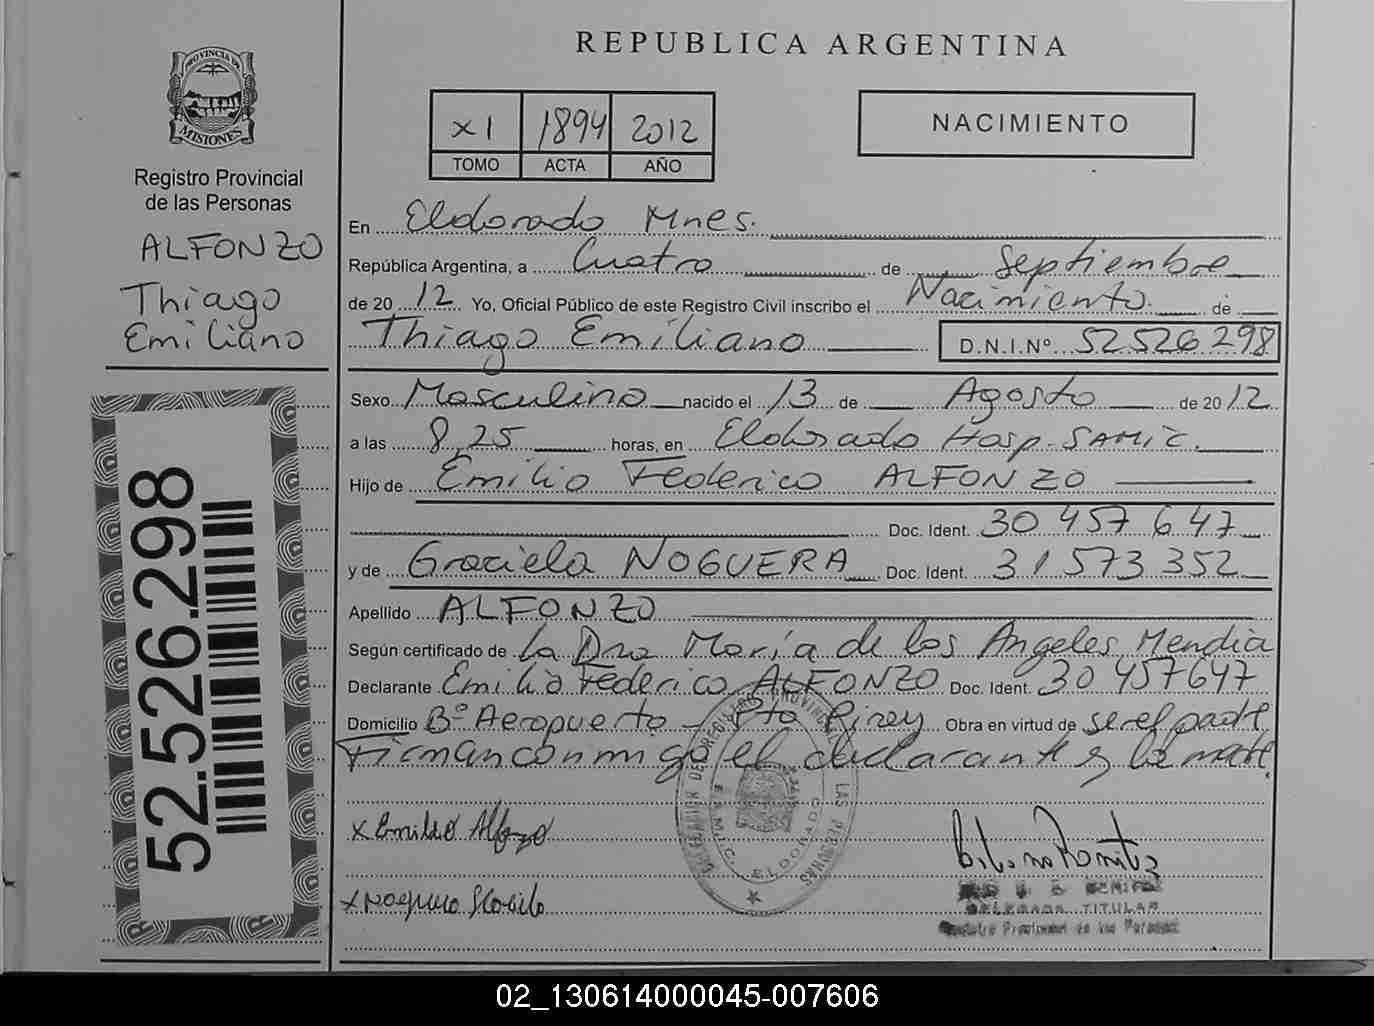 REPUBLICA ARGENTINA
PROVINCIA DE
MISIONES
Registro Provincial
de las Personas
ALFONZO
Thiago
Emiliano
52.526.298
XI 1894 2012
TOMO ACTA AÑO
NACIMIENTO
En Eldorado Mnes.
República Argentina, a Cuatro de Septiembre
de 20 12 Yo, Oficial Público de este Registro Civil inscribo el Nacimiento de
Thiago Emiliano D.N.I.Nº 52526298
Sexo Masculino nacido el 13 de Agosto de 20 12
a las 8,25 horas, en Eldorado Hosp. SAMIC.
Hijo de Emilio Federico ALFONZO
Doc. Ident. 30 457 647
y de Graciela NOGUERA Doc. Ident. 31 573 352
Apellido ALFONZO
Según certificado de La Dra María de los Angeles Mendia
Declarante Emilio Federico ALFONZO Doc. Ident. 30 457647
Domicilio Bº Aeropuerto - Pto Piray Obra en virtud de ser el padre
Firman conmigo el declarante y la madre
DELEGACION DE REGISTRO PROVINCIAL DE LAS PERSONAS
S.A.M.I.C. ELDORADO
X Emilio Alfonzo
X Noguera
DELEGADA TITULAR
Registro Provincial de las Personas
02_130614000045-007606